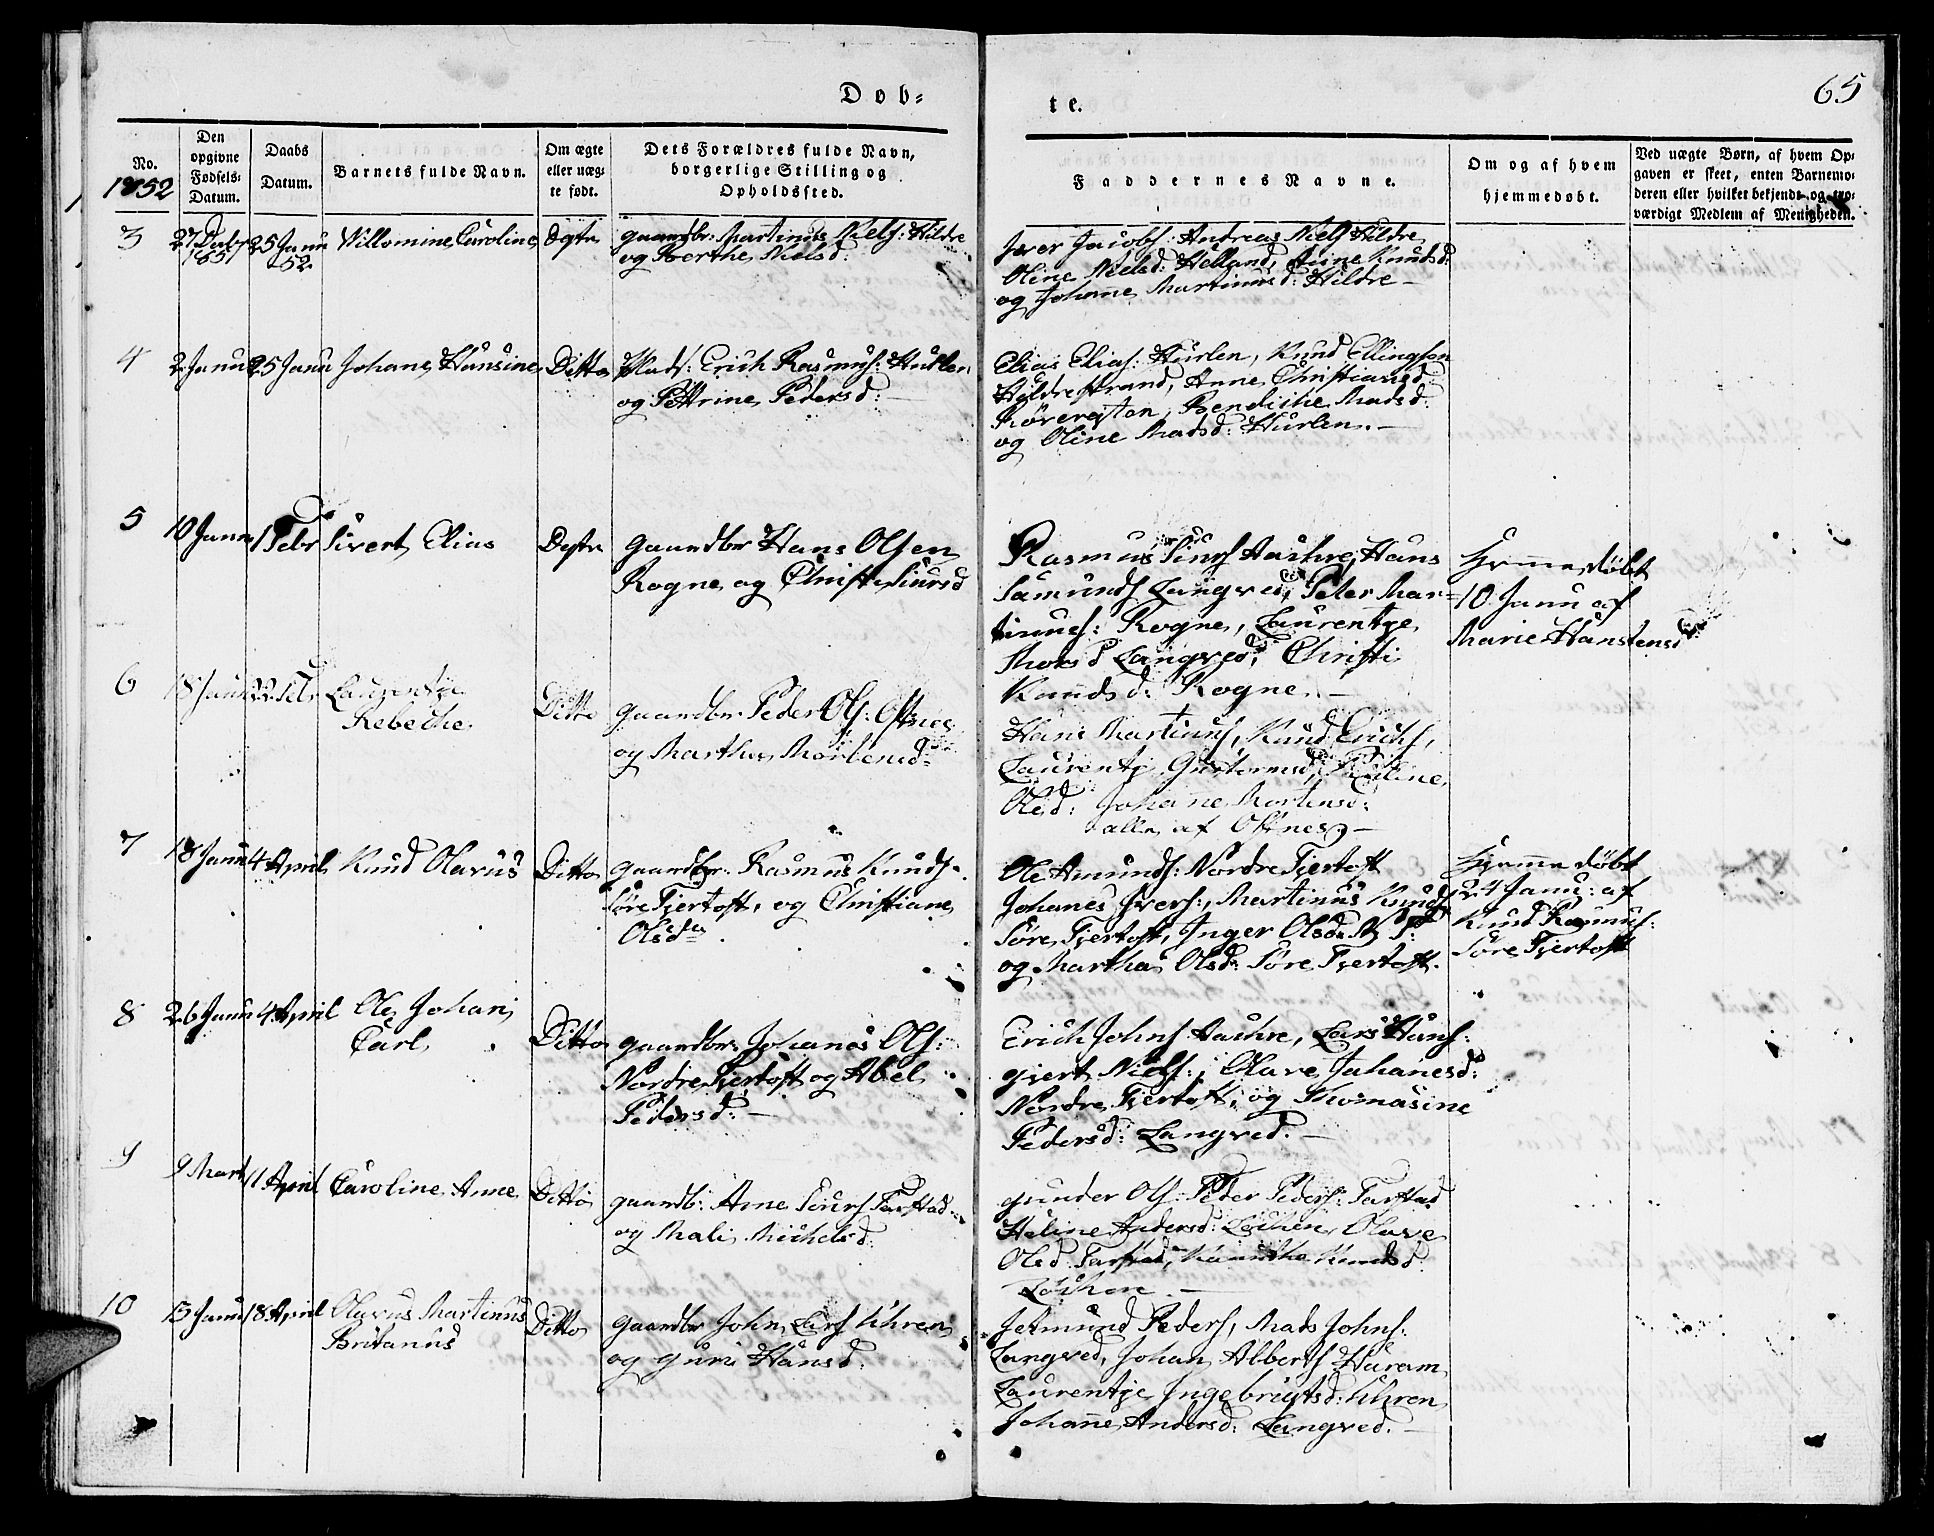 Døb-
te.
65
No.
1852
Den
opgivne
Fødsels-
Datum.
Daabs
Datum.
Barnets fulde Navn.
Om ægte
eller uæg-
te født.
Dets Forældres fulde Navn,
borgerlige Stilling og
Opholdssted.
Faddernes Navne.
Om og af hvem
hjemmedøbt.
Ved uægte Børn, af hvem Op-
gaven er skeet, enten Barnemo-
deren eller hvilket bekjendt og tro-
værdigt Medlem af Menigheden.
3
27 Decbr
1851
25 Janu
52
Villomine Caroline
Ægte
Gaardbr: Martinus Niels: Hildre
og Berthe Nielsd:
Iver Jacobs: Andreas Niels Hildre
Oline Nielsd: Helland, Anne Knudsd:
og Johanne Martinusd: Hildre –
4
2 Janu
25 Janu
Johane Hansine
Ditto
Plads: Erich Rasmus: Hurlen
og Pettrine Pedersd: –
Elias Elias: Hurlen, Knud Ellingsen
Hildrestrand, Anne Christiansd:
Bendicthe Madsd:
og Oline Madsd: Hurlen. –
5
10 Janu
1 Febr
Sivert Elias
Ægte
Gaardbr Hans Olsen
Rogne og Christi Siursd
Rasmus Siurs Aachre, Hans
Samunds Langved, Peter Mar-
tinus: Rogne, Laurentze
Langved, Christi
Knudsd: Rogne. –
Hjemmedøbt
10 Janu af
Marie Hanstensd
6
18 Janu
22 Febr
Laurentze
Rebecke
Ditto
Gaardbr. Peder Ols: Ofsnes
og Marthe Mortensd:
Hans Martinus, Knud Erichs,
Laurentze Guttormsd,
Olsd: Johanne Mortensd:
alle af Ofsnes. –
7
18 Janu
4 April
Knud Olavus
Ditto
Gaardbr. Rasmus Knuds:
Søre Fjertoft, og Christiane
Olsd:
Ole Amunds: Nordre Fjertoft
Johanes Ivers:, Martinus Knuds
Søre Fjertoft, Inger Olsd:
og Marthe Olsd: Søre Fjertoft.
Hjemmedøbt
24 Janu: af
Knud Rasmus:
Søre Fjertoft
8
26 Janu
4 April
Ole Johan
Carl
Ditto
Gaardbr: Johanes Ols:
Nordre Fjertoft og Abel
Pedersd: –
Erich Johns Aachre, Lars Hans:
Giert Niels:, Olave Johanesd:
Nordre Fjertoft, og Thomasine
Pedersd: Langved. –
9
9 Mart
11 April
Caroline Anne
Ditto
Gaardb: Arne Siurs Farstad
og Mali Michelsd:
Gunder Ols: Peder Peders: Farstad
Heline Andersd: Løchen, Olave
Olsd Farstad, Knudsd
Løchen. –
10
13 Janu
18 April
Olavus Martinus
Britanus
Ditto
Gaardbr John Lars Uhren
og Guri Hansd:
Jetmund Peders, Mads Johns:
Langved, Johan Alberts Haram
Laurentze Ingebrigtsd: Uhren
Johanne Andersd: Langved. –